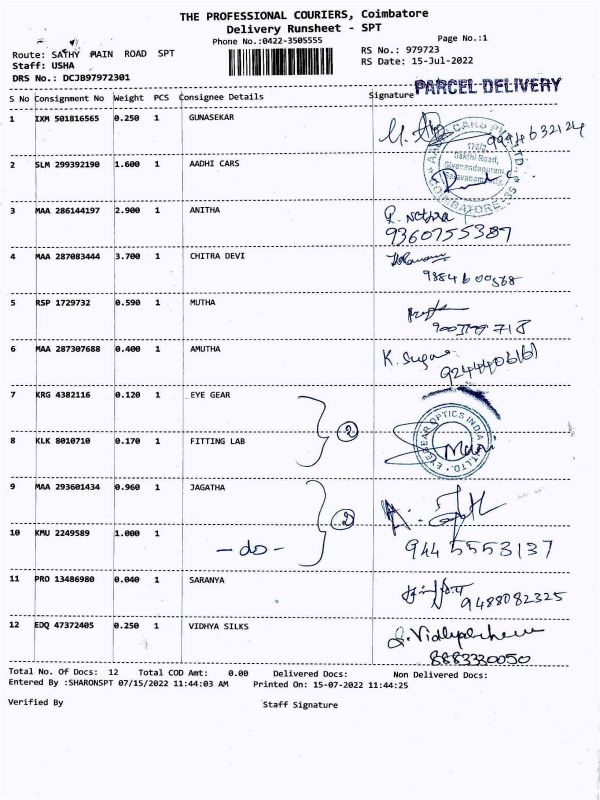 THE PROFESSIONAL COURIERS, Coimbatore
Delivery Runsheet - SPT
Phone No.:0422-3505555
Page No.:1
Route: SATHY MAIN ROAD SPT
RS No.: 979723
Staff: USHA
RS Date: 15-Jul-2022
DRS No.: DCJB97972301
PARCEL DELIVERY
S No Consignment No Weight PCS Consignee Details Signature
1 IXM 501816565 0.250 1 GUNASEKAR 9994632124
2 SLM 299392190 1.600 1 AADHI CARS
3 MAA 286144197 2.900 1 ANITHA
9360755387
4 MAA 287083444 3.700 1 CHITRA DEVI
5 RSP 1729732 0.590 1 MUTHA
6 MAA 287307688 0.400 1 AMUTHA K.
7 KRG 4382116 0.120 1 EYE GEAR
2
8 KLK 8010710 0.170 1 FITTING LAB
EYEGEAR OPTICS INDIA PVT.LTD.
9 MAA 293601434 0.960 1 JAGATHA
2
10 KMU 2249589 1.000 1
- do - 9445553137
11 PRO 13486980 0.040 1 SARANYA
9488082325
12 EDQ 47372405 0.250 1 VIDHYA SILKS
8883330050
Total No. Of Docs: 12 Total COD Amt: 0.00 Delivered Docs: Non Delivered Docs:
Entered By :SHARONSPT 07/15/2022 11:44:03 AM Printed On: 15-07-2022 11:44:25
Verified By Staff Signature